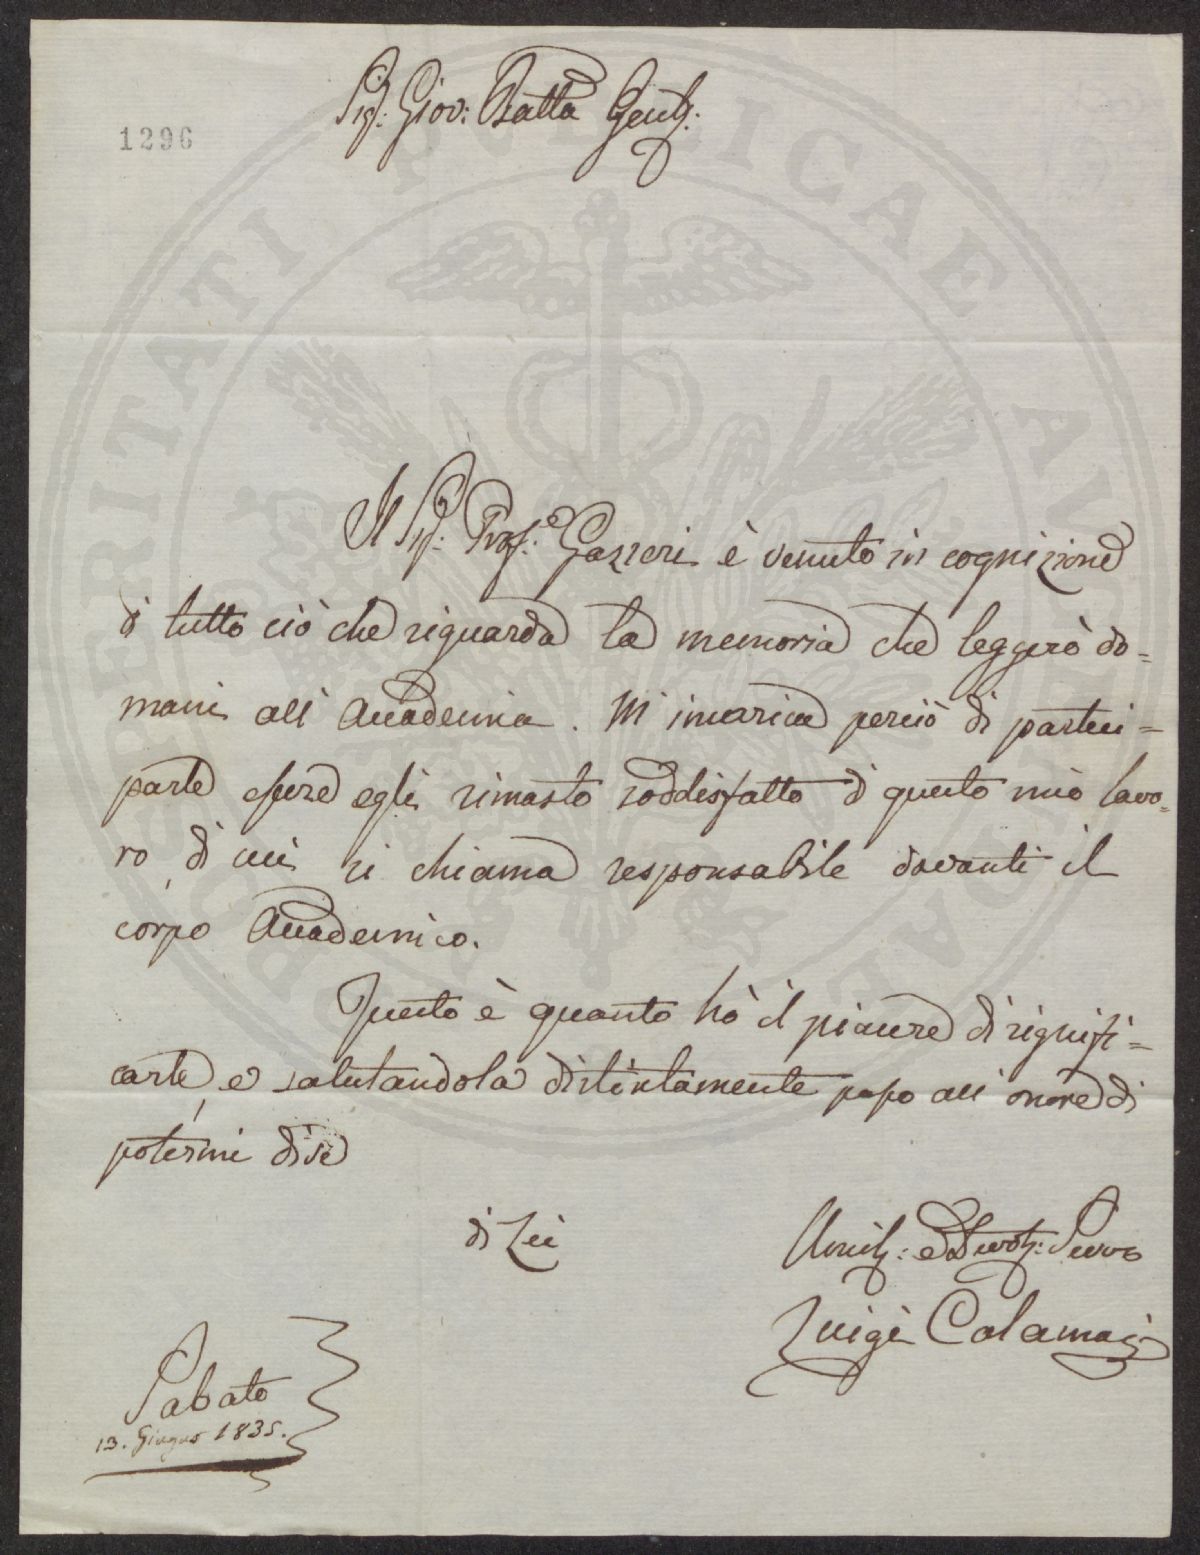 Sig.r Giov: Batta Gent.:
1296
Il Sig.r Prof.e Gazzeri è venuto in cognizione
di tutto ciò che riguarda la memoria che leggerò do=
mani all' Accademia. M' incarica perciò di parteci=
parle essere egli rimasto soddisfatto di questo mio lavo=
ro, di cui si chiama responsabile davanti il
corpo Accademico.
Questo è quanto hò il piacere di signifi=
carle, e salutandola distintamente passo all' onore di
potermi dire
di Lei
Umil.: e Devot.: Servo
Luigi Calamai
Sabato
13. Giugno 1835.
PROSPERITATI PUBLICAE AUGENDAE